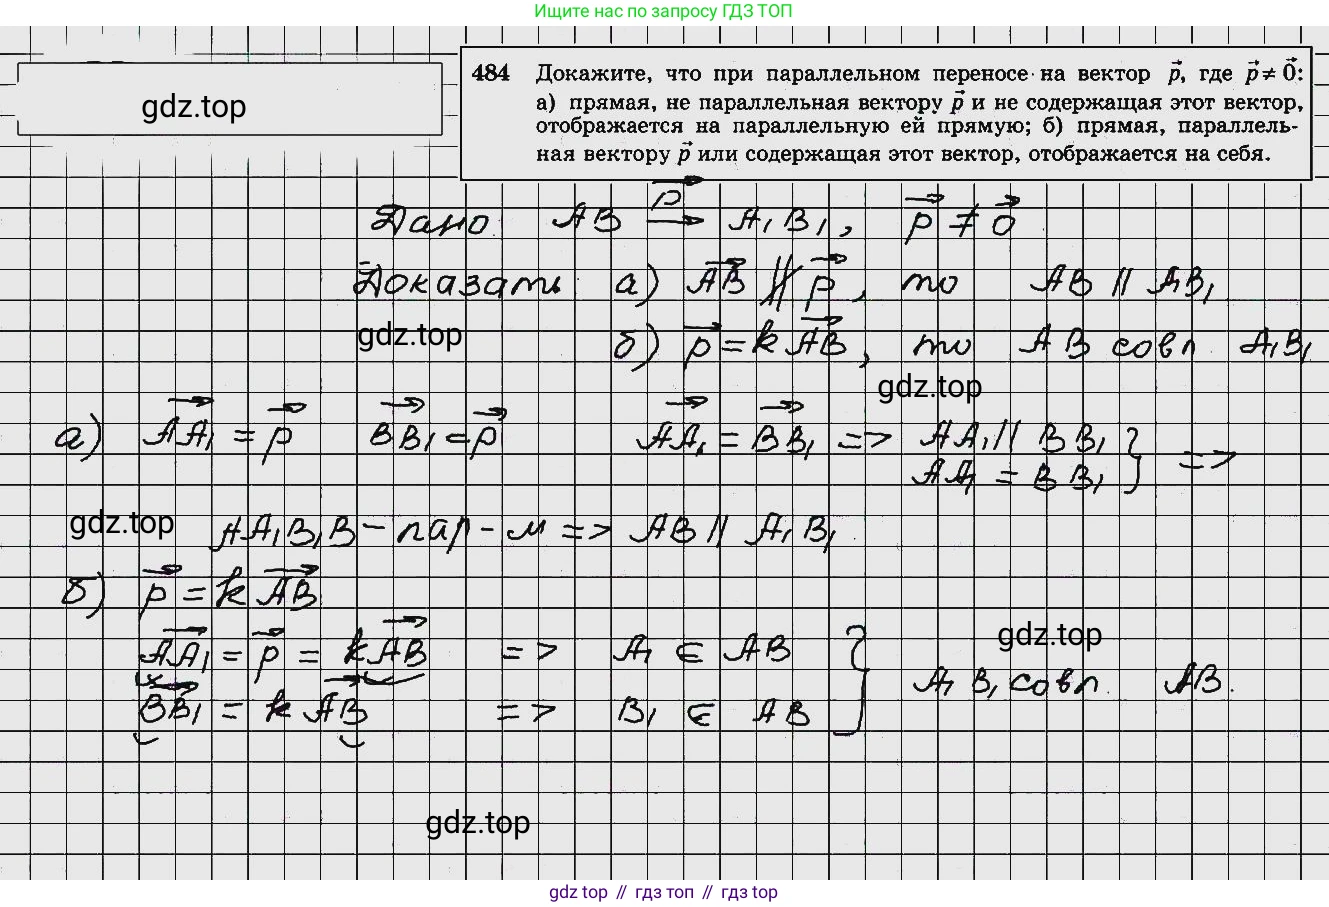 Ищите нас по запросу ГДЗ ТОП
gdz.top
484 Докажите, что при параллельном переносе на вектор p⃗, где p⃗ ≠ 0⃗:
а) прямая, не параллельная вектору p⃗ и не содержащая этот вектор,
отображается на параллельную ей прямую; б) прямая, параллель-
ная вектору p⃗ или содержащая этот вектор, отображается на себя.
Дано AB —p⃗→ A₁B₁, p⃗ ≠ 0⃗
Доказать а) AB⃗ ∦ p⃗, то AB || A₁B₁
gdz.top
б) p⃗ = kAB⃗, то AB совп A₁B₁
gdz.top
а) AA₁⃗ = p⃗ BB₁⃗ = p⃗ AA₁⃗ = BB₁⃗ => AA₁ || BB₁
AA₁ = BB₁ } =>
gdz.top
AA₁B₁B – пар-м => AB || A₁B₁
б) p⃗ = kAB⃗
AA₁⃗ = p⃗ = kAB⃗ => A₁ ∈ AB
gdz.top
BB₁⃗ = kAB⃗ => B₁ ∈ AB } A₁B₁ совп. AB.
gdz.top
gdz top // гдз топ // gdz top